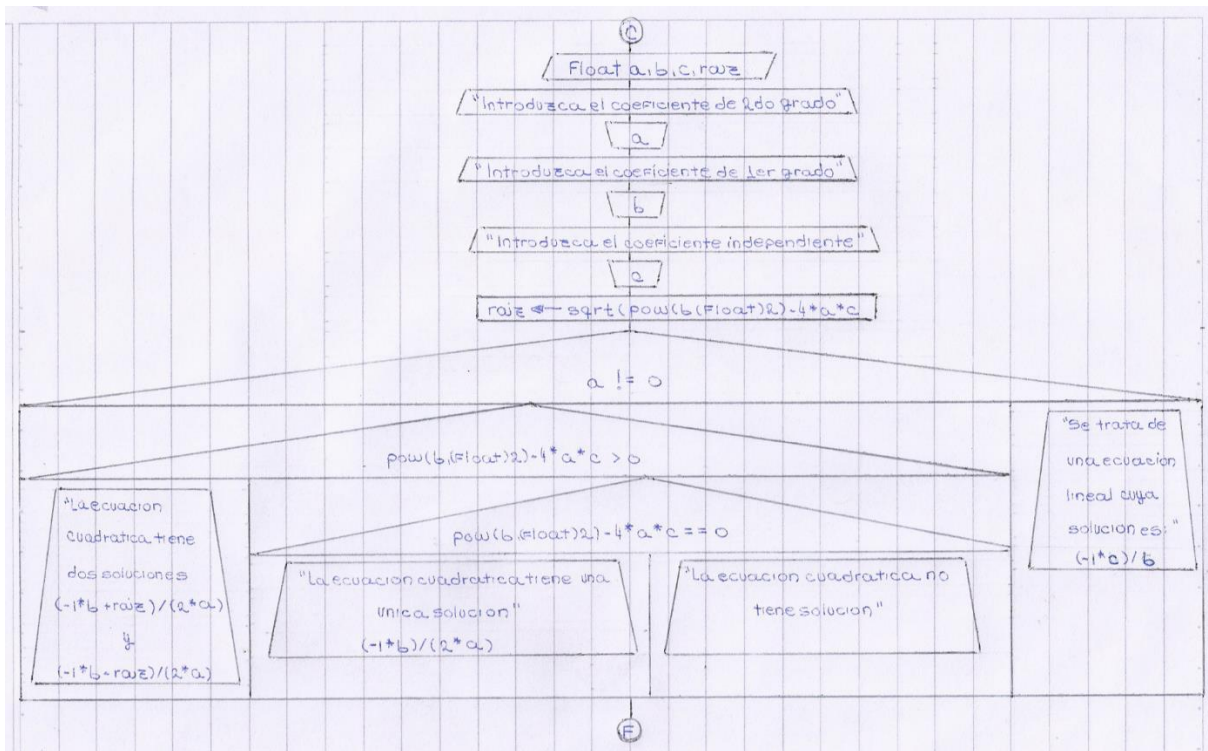 C
Float a,b,c,raiz
"Introduzca el coeficiente de 2do grado"
a
"Introduzca el coeficiente de 1er grado"
b
"Introduzca el coeficiente independiente"
c
raiz ← sqrt(pow(b(Float)2)-4*a*c
a != 0
pow(b,(Float)2)-4*a*c > 0
"La ecuacion
cuadratica tiene
dos soluciones
(-1*b+raiz)/(2*a)
y
(-1*b-raiz)/(2*a)
pow(b,(Float)2)-4*a*c == 0
"La ecuacion cuadratica tiene una
unica solucion"
(-1*b)/(2*a)
"La ecuacion cuadratica no
tiene solucion"
"Se trata de
una ecuación
lineal cuya
solucion es:"
(-1*c)/b
F